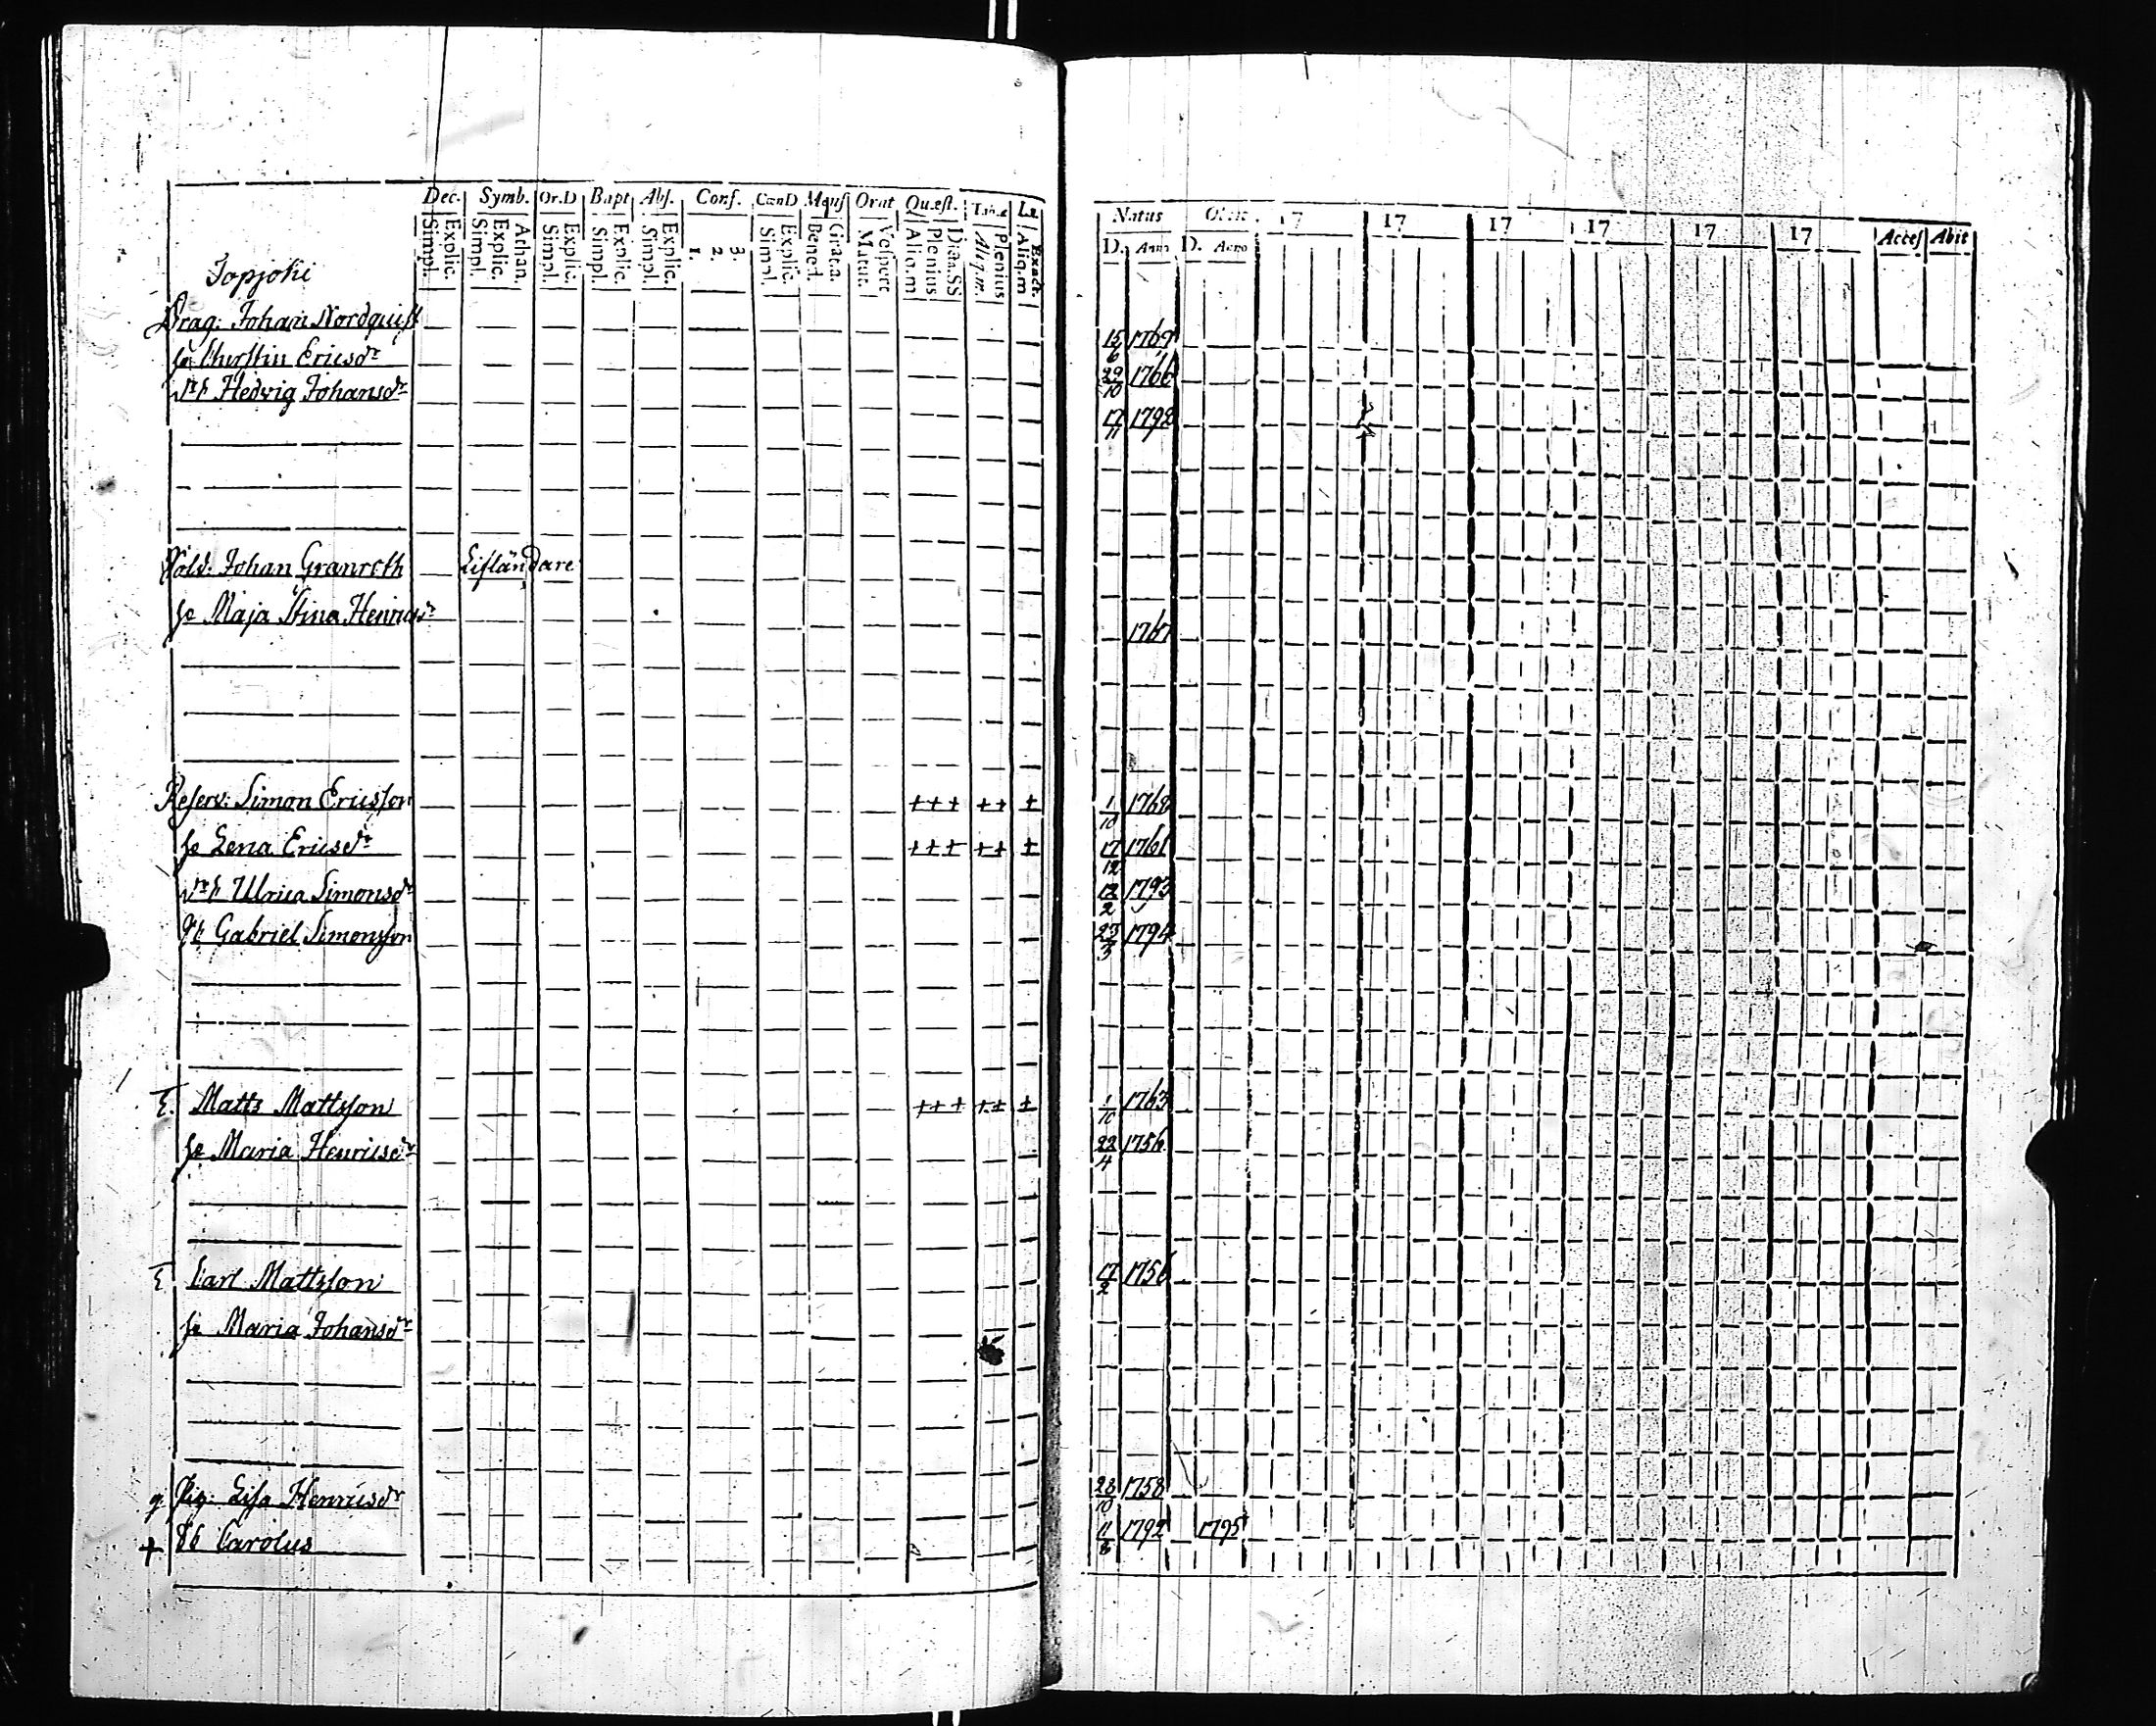 Dec. Symb. Or.D Bapt Abs. Conf. CœnD Mens Orat Quæst. Tabæ
Simpl. Explic. Simpl. Explic. Athan. Simpl. Explic. Simpl. Explic. Simpl. Explic. 1. 2. 3. Simpl. Explic. Bened. Grat.a. Matut. Vespere Aliq.m Plenius Aliq.m. Plenius Aliq.m Exact.
Natus D. Ann D. Anno 17 17 17 17 17 17 Acces Abit
Topjoki
Drag: Johan Nordquist 15/6 1767
Chirstin Ericsdr 29/10 1766
Hedvig Johansdr 17/11 1798
Johan Granroth Lifländare
Maja Stina Henricsdr 1767
Reserv: Simon Ericsson +++ ++ + 1/10 1768
Lena Ericsdr +++ ++ + 17/12 1761
Ulrica Simonsdr 12/2 1793
Gabriel Simonsson 23/3 1794
Matts Mattsson +++ ++ + 1/10 1763
Maria Henricsdr 22/4 1756
Carl Mattsson 17/2 1756
Maria Johansdr
Pig: Lisa Henricsdr 28/10 1758
+ Carolus 11/8 1792 1795